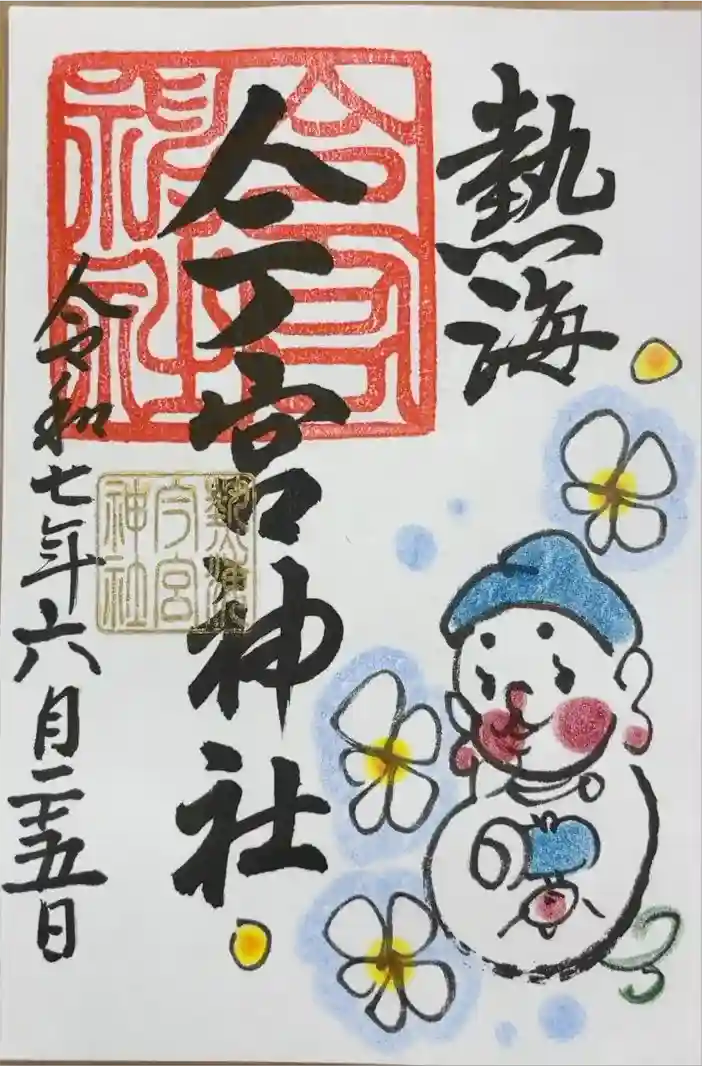 熱海
今宮神社
令和七年六月二十五日
今宮
神社
熱海
今宮
神社